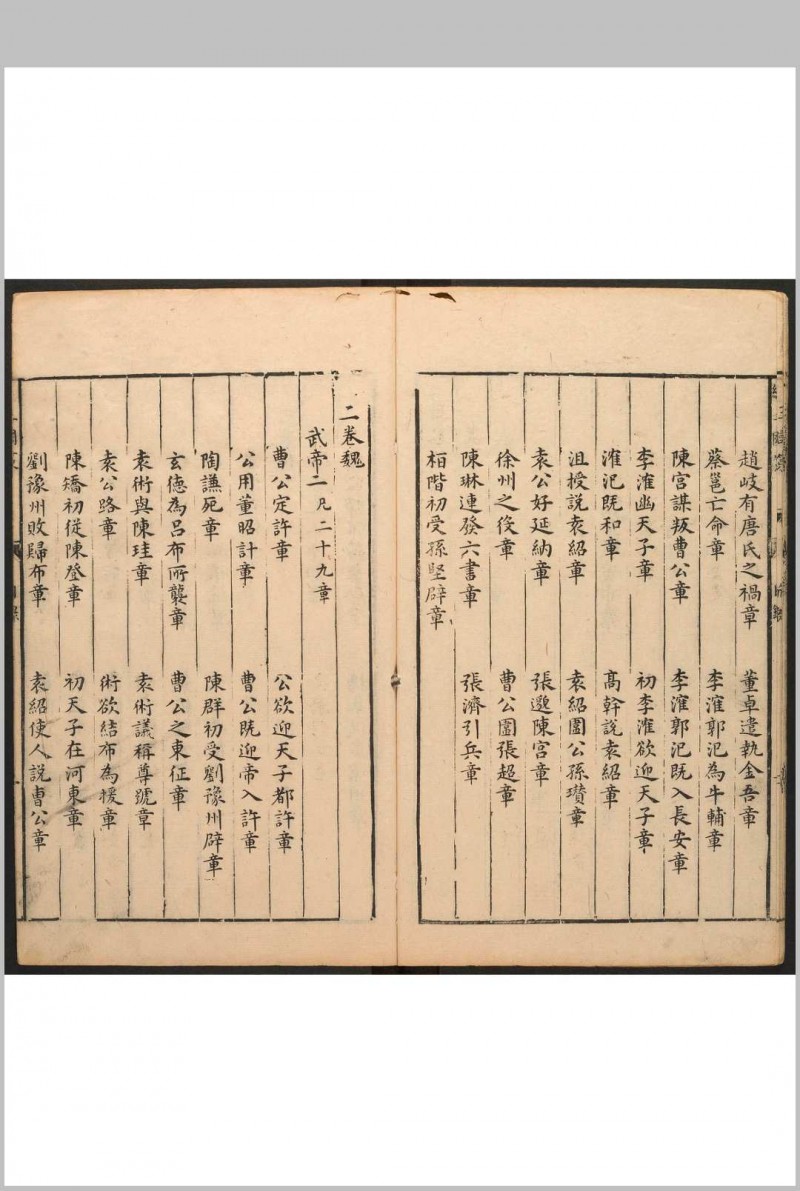 趙岐有唐氏之禍章　董卓遣執金吾章
蔡邕亡命章　李漼郭汜為牛輔章
陳宮謀叛曹公章　李漼郭汜既入長安章
李漼幽天子章　初李漼欲迎天子章
漼汜既和章　高幹說袁紹章
沮授説袁紹章　袁紹圍公孫瓚章
袁公好延納章　張邈陳宮章
徐州之役章　曹公圍張超章
陳琳連發六書章　張濟引兵章
栢階初受孫堅辟章
二卷魏
武帝二凡二十九章
曹公定許章　公欲迎天子都許章
公用董昭計章　曹公既迎帝入許章
陶謙死章　陳群初受劉豫州辟章
玄德為呂布所襲章　曹公之東征章
袁術與陳珪章　袁術議稱尊號章
袁公路章　術欲結布為援章
陳矯初從陳登章　初天子在河東章
劉豫州敗歸布章　袁紹使人說曹公章